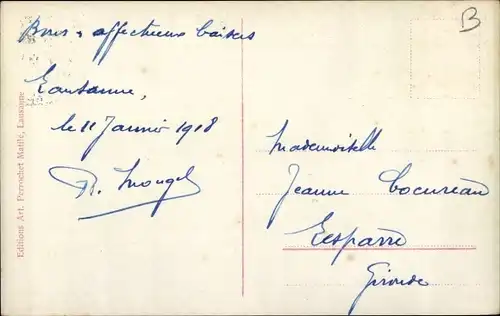 Bons & affectueux baisers
Lausanne,
le 11 Janvier 1918
Mougel
Mademoiselle
Jeanne Cocureau
Lesparre
Gironde
Editions Art. Perrochet Matile, Lausanne
B